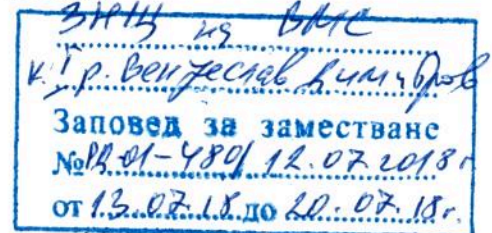 ЗНЩ на ВМС
к. I р. Венцеслав Димитров
Заповед за заместване
№ РД-01-480/12.07.2018 г.
от 13.07.18 до 20.07.18 г.